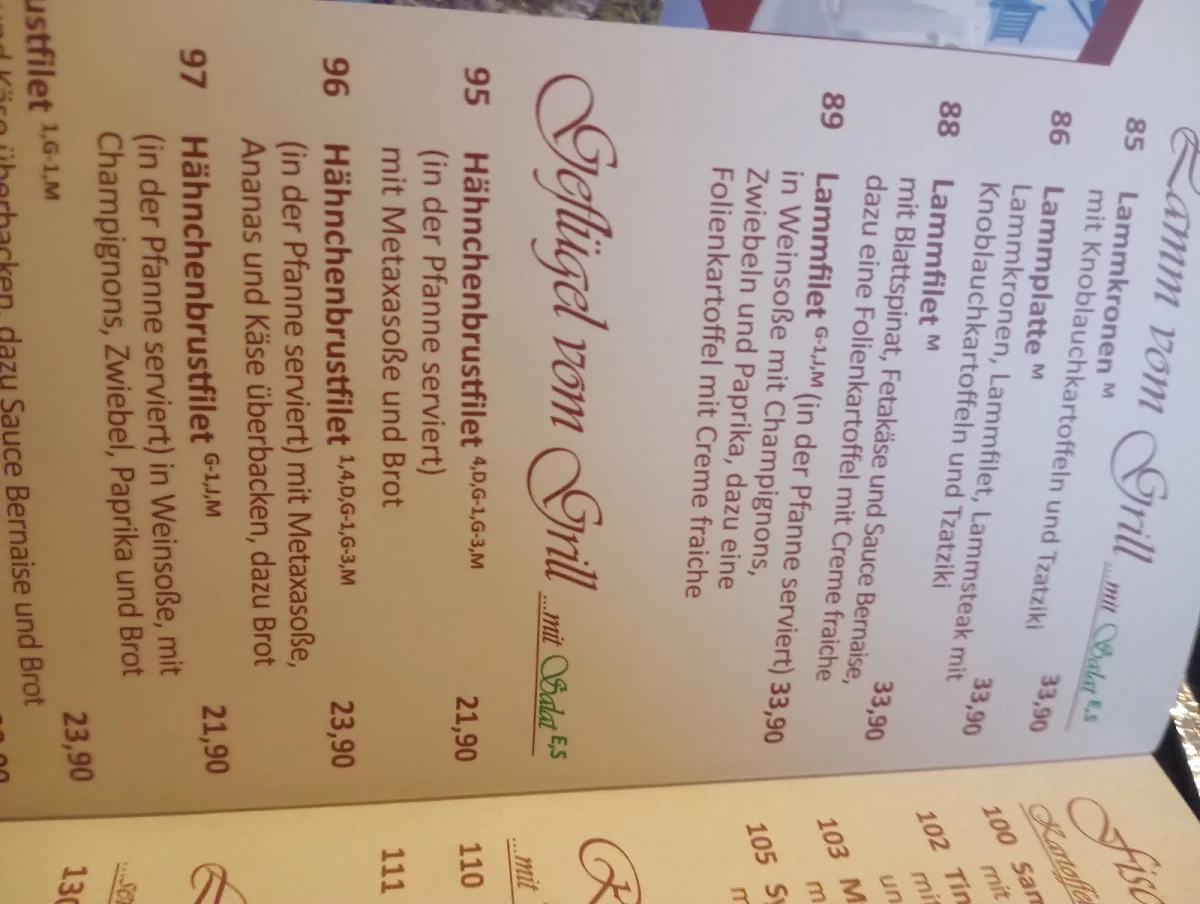 Lamm vom Grill ...mit Salat E,S
85 Lammkronen M
mit Knoblauchkartoffeln und Tzatziki 33,90
86 Lammplatte M
Lammkronen, Lammfilet, Lammsteak mit
Knoblauchkartoffeln und Tzatziki 33,90
88 Lammfilet M
mit Blattspinat, Fetakäse und Sauce Bernaise,
dazu eine Folienkartoffel mit Creme fraiche 33,90
89 Lammfilet G-1,J,M (in der Pfanne serviert) 33,90
in Weinsoße mit Champignons,
Zwiebeln und Paprika, dazu eine
Folienkartoffel mit Creme fraiche
Geflügel vom Grill ...mit Salat E,S
95 Hähnchenbrustfilet 4,D,G-1,G-3,M 21,90
(in der Pfanne serviert)
mit Metaxasoße und Brot
96 Hähnchenbrustfilet 1,4,D,G-1,G-3,M 23,90
(in der Pfanne serviert) mit Metaxasoße,
Ananas und Käse überbacken, dazu Brot
97 Hähnchenbrustfilet G-1,J,M 21,90
(in der Pfanne serviert) in Weinsoße, mit
Champignons, Zwiebel, Paprika und Brot
ustfilet 1,G-1,M 23,90
und Käse überbacken, dazu Sauce Bernaise und Brot
Fisc
Kartoffel
100 San
mit
102 Tin
mit
un
103 M
m
105 Sy
m
...mit
110
111
130